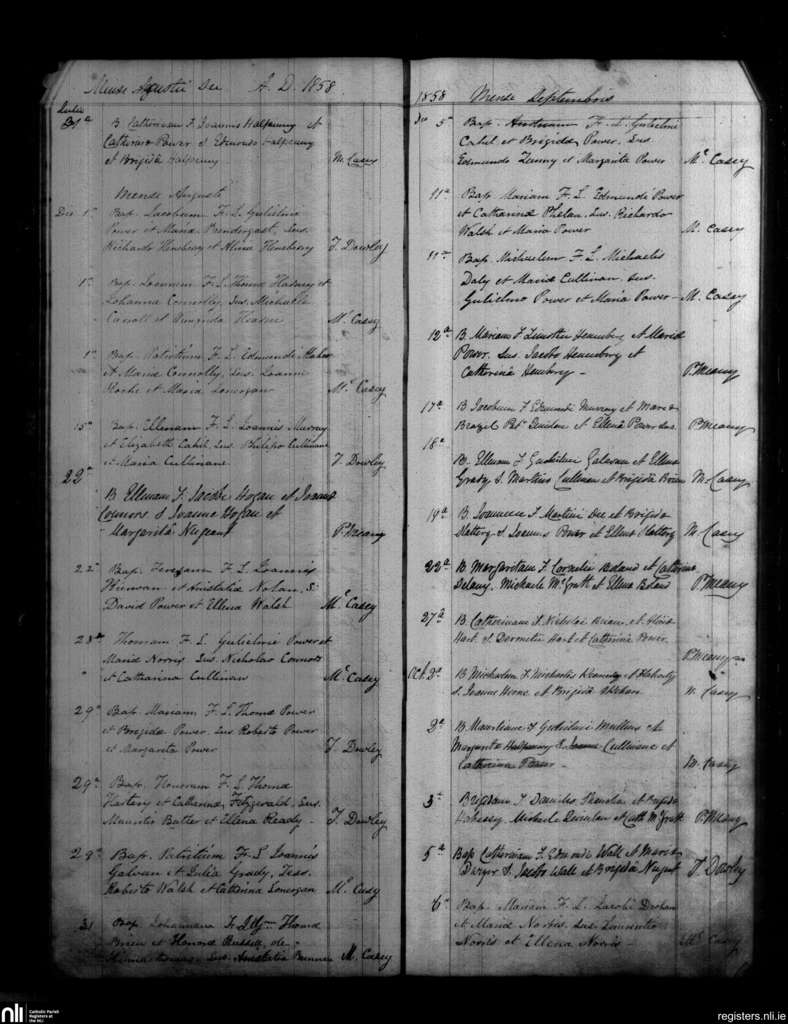 Mense Agustii Die A. D. 1858
Julii
31ª B Catherinam F. Joannis Halpenny et
Catherina Power S Edmundo Halpenny
et Brigida Halpenny M. Casey
Mense Augusti
Die 1ª Bap. Jacobum F. L. Gulielmi
Power et Maria Prendergast, Sus.
Richardo Henebery et Alina Henebery J. Dowley
1ª Bap. Joannem F. L. Thoma et
Johanna Connolly, Sus. Michaele
Carroll et M. Casey
1ª Bap. Patritium F. L. Edmundi
et Maria Connolly, Sus. Joanni
et Maria Lonergan Mc. Casey
15ª Bap. Ellenam F. L. Joannis Murray
et Elizabeth Cahil, Sus. Philipo Cullinane
et Maria Cullinane. J. Dowley
22ª
B Ellenam F. Jacobi Hogan et Joanna
Connors S Joanne Hogan et
Margarita Nugent P. Meany
22ª Bap. F. L. Joannis
et Anistatia Nolan, S.
David Power et Ellena Walsh Mc. Casey
28ª Thomam F. L. Gulielmi Power et
Maria Norris Sus Nicholao Connors
et Catharina Cullinan Mc. Casey
29ª Bap. Mariam F. L. Thoma Power
et Brigida Power. Sus Roberto Power
et Margarita Power J. Dowley
29ª Bap. Honoram F. L. Thoma
Hartery et Catherina Fitzgerald, Sus.
Mauritio Butler et Ellena Ready - J. Dowley
29ª Bap. Patritium F. L. Joannis
Galvan et Julia Grady, Tess.
Roberto Walsh et Catharina Lonergan Mc. Casey
31 Bap. Johannam F. Thoma
Brien et Honora Russell, de
Sus. Anistatia M. Casey
1858 Mense Septembris
Die 5ª Bap. F. L. Gulielmi
Cahil et Brigida Power, Sus.
Edmundo et Margarita Power Mc. Casey
11ª Bap. Mariam F. L. Edmundi Power
et Catharina Phelan, Sus. Richardo
Walsh et Maria Power M. Casey
11ª Bap. Michaelem F. L. Michaelis
Daly et Maria Cullinan, Sus.
Gulielmo Power et Maria Power - M. Casey
12ª B. Mariam F Timothei Henneberg et Maria
Power. Sus. Jacobo Henneberg et
Catherina Henebery - P. Meany
17ª B Jacobum F Edmundi Murray et Maria
Brazel Pat. Quinlan et Ellena Power Sus. P Meany
18ª
B. Ellenam F Galavan et Ellena
Grady S. Martino Cullinan et Brigida M. Casey
19ª B. Joannem F Martini Dee et Brigida
Slattery S Joannes Power et Ellena Slattery M. Casey
22ª B Margaritam F Cornelii Boland et Catherina
Delany. Michaele McGrath et Ellena Boland P. Meany
27ª B. Catherinam F. Nicholai Keran et
Hart. S Dermotio Hart et Catherina Power.
P. Meany
Oct. 2ª B Michaelem F. Michaelis et
S. Joanne et Brigida M. Casey
2ª B Mullins et
Margarita Halpenny S Joanne Cullinane et
Catherina Power - M. Casey
3ª Brigidam F Danielis et Brigida
Hahessy. Michaele Quinlan et Cath McGrath P. Meany
5ª Bap Catherinam F. Edmundi Wall et Maria
Dwyer S. Jacobo Wall et Brigida Nugent J. Dowley
6ª Bap. Mariam F. L. Jacobi
et Maria Norris, Sus. Laurentio
Norris et Ellena Norris - Mc. Casey
nli
Catholic Parish
Registers at
the NLI
registers.nli.ie